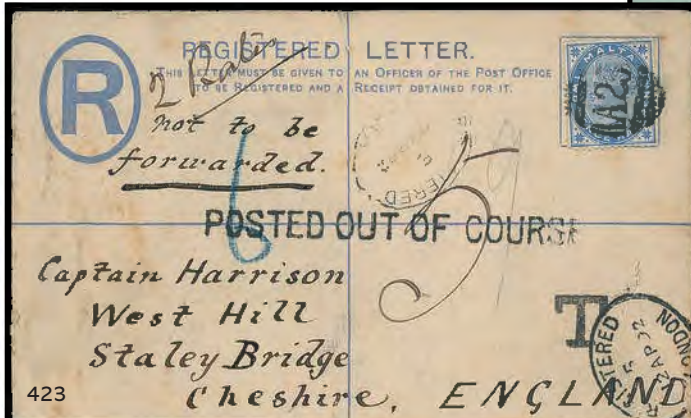 REGISTERED LETTER.
THIS LETTER MUST BE GIVEN TO AN OFFICER OF THE POST OFFICE
TO BE REGISTERED AND A RECEIPT OBTAINED FOR IT.
R
MALTA
A25
not to be
forwarded.
6
5
POSTED OUT OF COURSE
Captain Harrison
West Hill
Staley Bridge
Cheshire, ENGLAND
T
REGISTERED
LONDON
2 AP 92
423